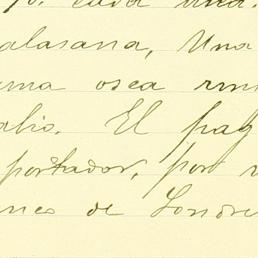 cada una.
alasana, Una
ma osea
El pag
portador, por
de Londre